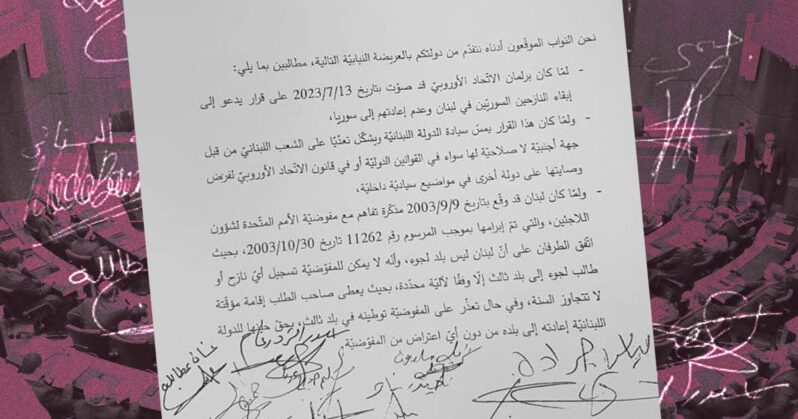 نحن النواب الموقّعون أدناه نتقدّم من دولتكم بالعريضة النيابيّة التالية، مطالبين بما يلي:
- لمّا كان برلمان الاتّحاد الأوروبيّ قد صوّت بتاريخ 2023/7/13 على قرار يدعو إلى
إبقاء النازحين السوريّين في لبنان وعدم إعادتهم إلى سوريا،
- ولمّا كان هذا القرار يمسّ سيادة الدولة اللبنانيّة ويشكّل تعدّيًا على الشعب اللبنانيّ من قبل
جهة أجنبيّة لا صلاحيّة لها سواء في القوانين الدوليّة أو في قانون الاتّحاد الأوروبيّ لفرض
وصايتها على دولة أخرى في مواضيع سياديّة داخليّة،
- ولمّا كان لبنان قد وقّع بتاريخ 2003/9/9 مذكّرة تفاهم مع مفوضيّة الأمم المتّحدة لشؤون
اللاجئين، والتي تمّ إبرامها بموجب المرسوم رقم 11262 تاريخ 2003/10/30، بحيث
اتّفق الطرفان على أنّ لبنان ليس بلد لجوء، وأنّه لا يمكن للمفوّضيّة تسجيل أيّ نازح أو
طالب لجوء إلى بلد ثالث إلّا وفقًا لآليّة محدّدة، بحيث يعطى صاحب الطلب إقامة مؤقّتة
لا تتجاوز السنة، وفي حال تعذّر على المفوضيّة توطينه في بلد ثالث، يحق حينها للدولة
اللبنانيّة إعادته إلى بلده من دون أيّ اعتراض من المفوضيّة.
غسان عطالله
الياس جرادة